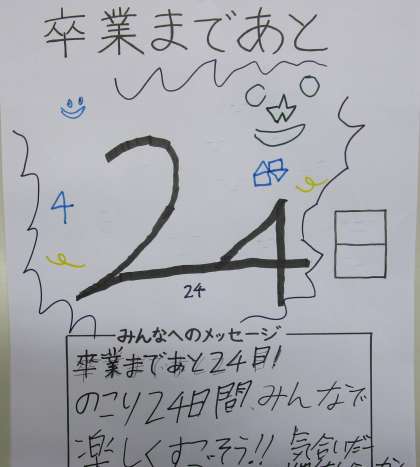 卒業まであと
24
日
4
24
みんなへのメッセージ
卒業まであと24日!
のこり24日間、みんなで
楽しくすごそう!! 気合いだー